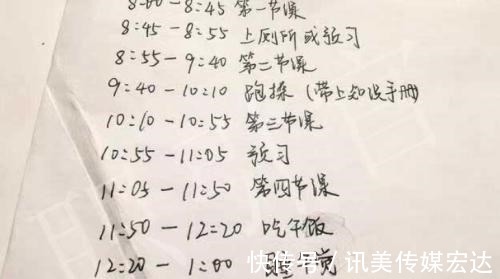 8:00 - 8:45 第一节课
8:45 - 8:55 上厕所或预习
8:55 - 9:40 第二节课
9:40 - 10:10 跑操 (带上知识手册)
10:10 - 10:55 第三节课
10:55 - 11:05 预习
11:05 - 11:50 第四节课
11:50 - 12:20 吃午饭
12:20 - 1:00 觉
快传号/讯美传媒宏达